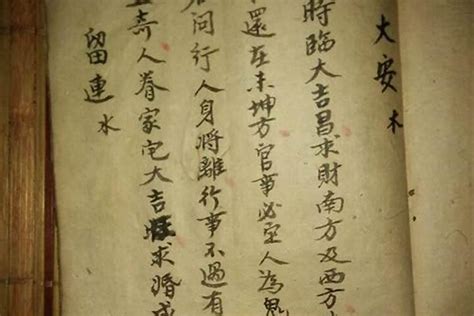 大安木
時臨大吉昌求財南方及西方
還在未坤方官事必定人為鬼
問行人身將離行事不過有
奇人眷家宅大吉求婚成
留連水